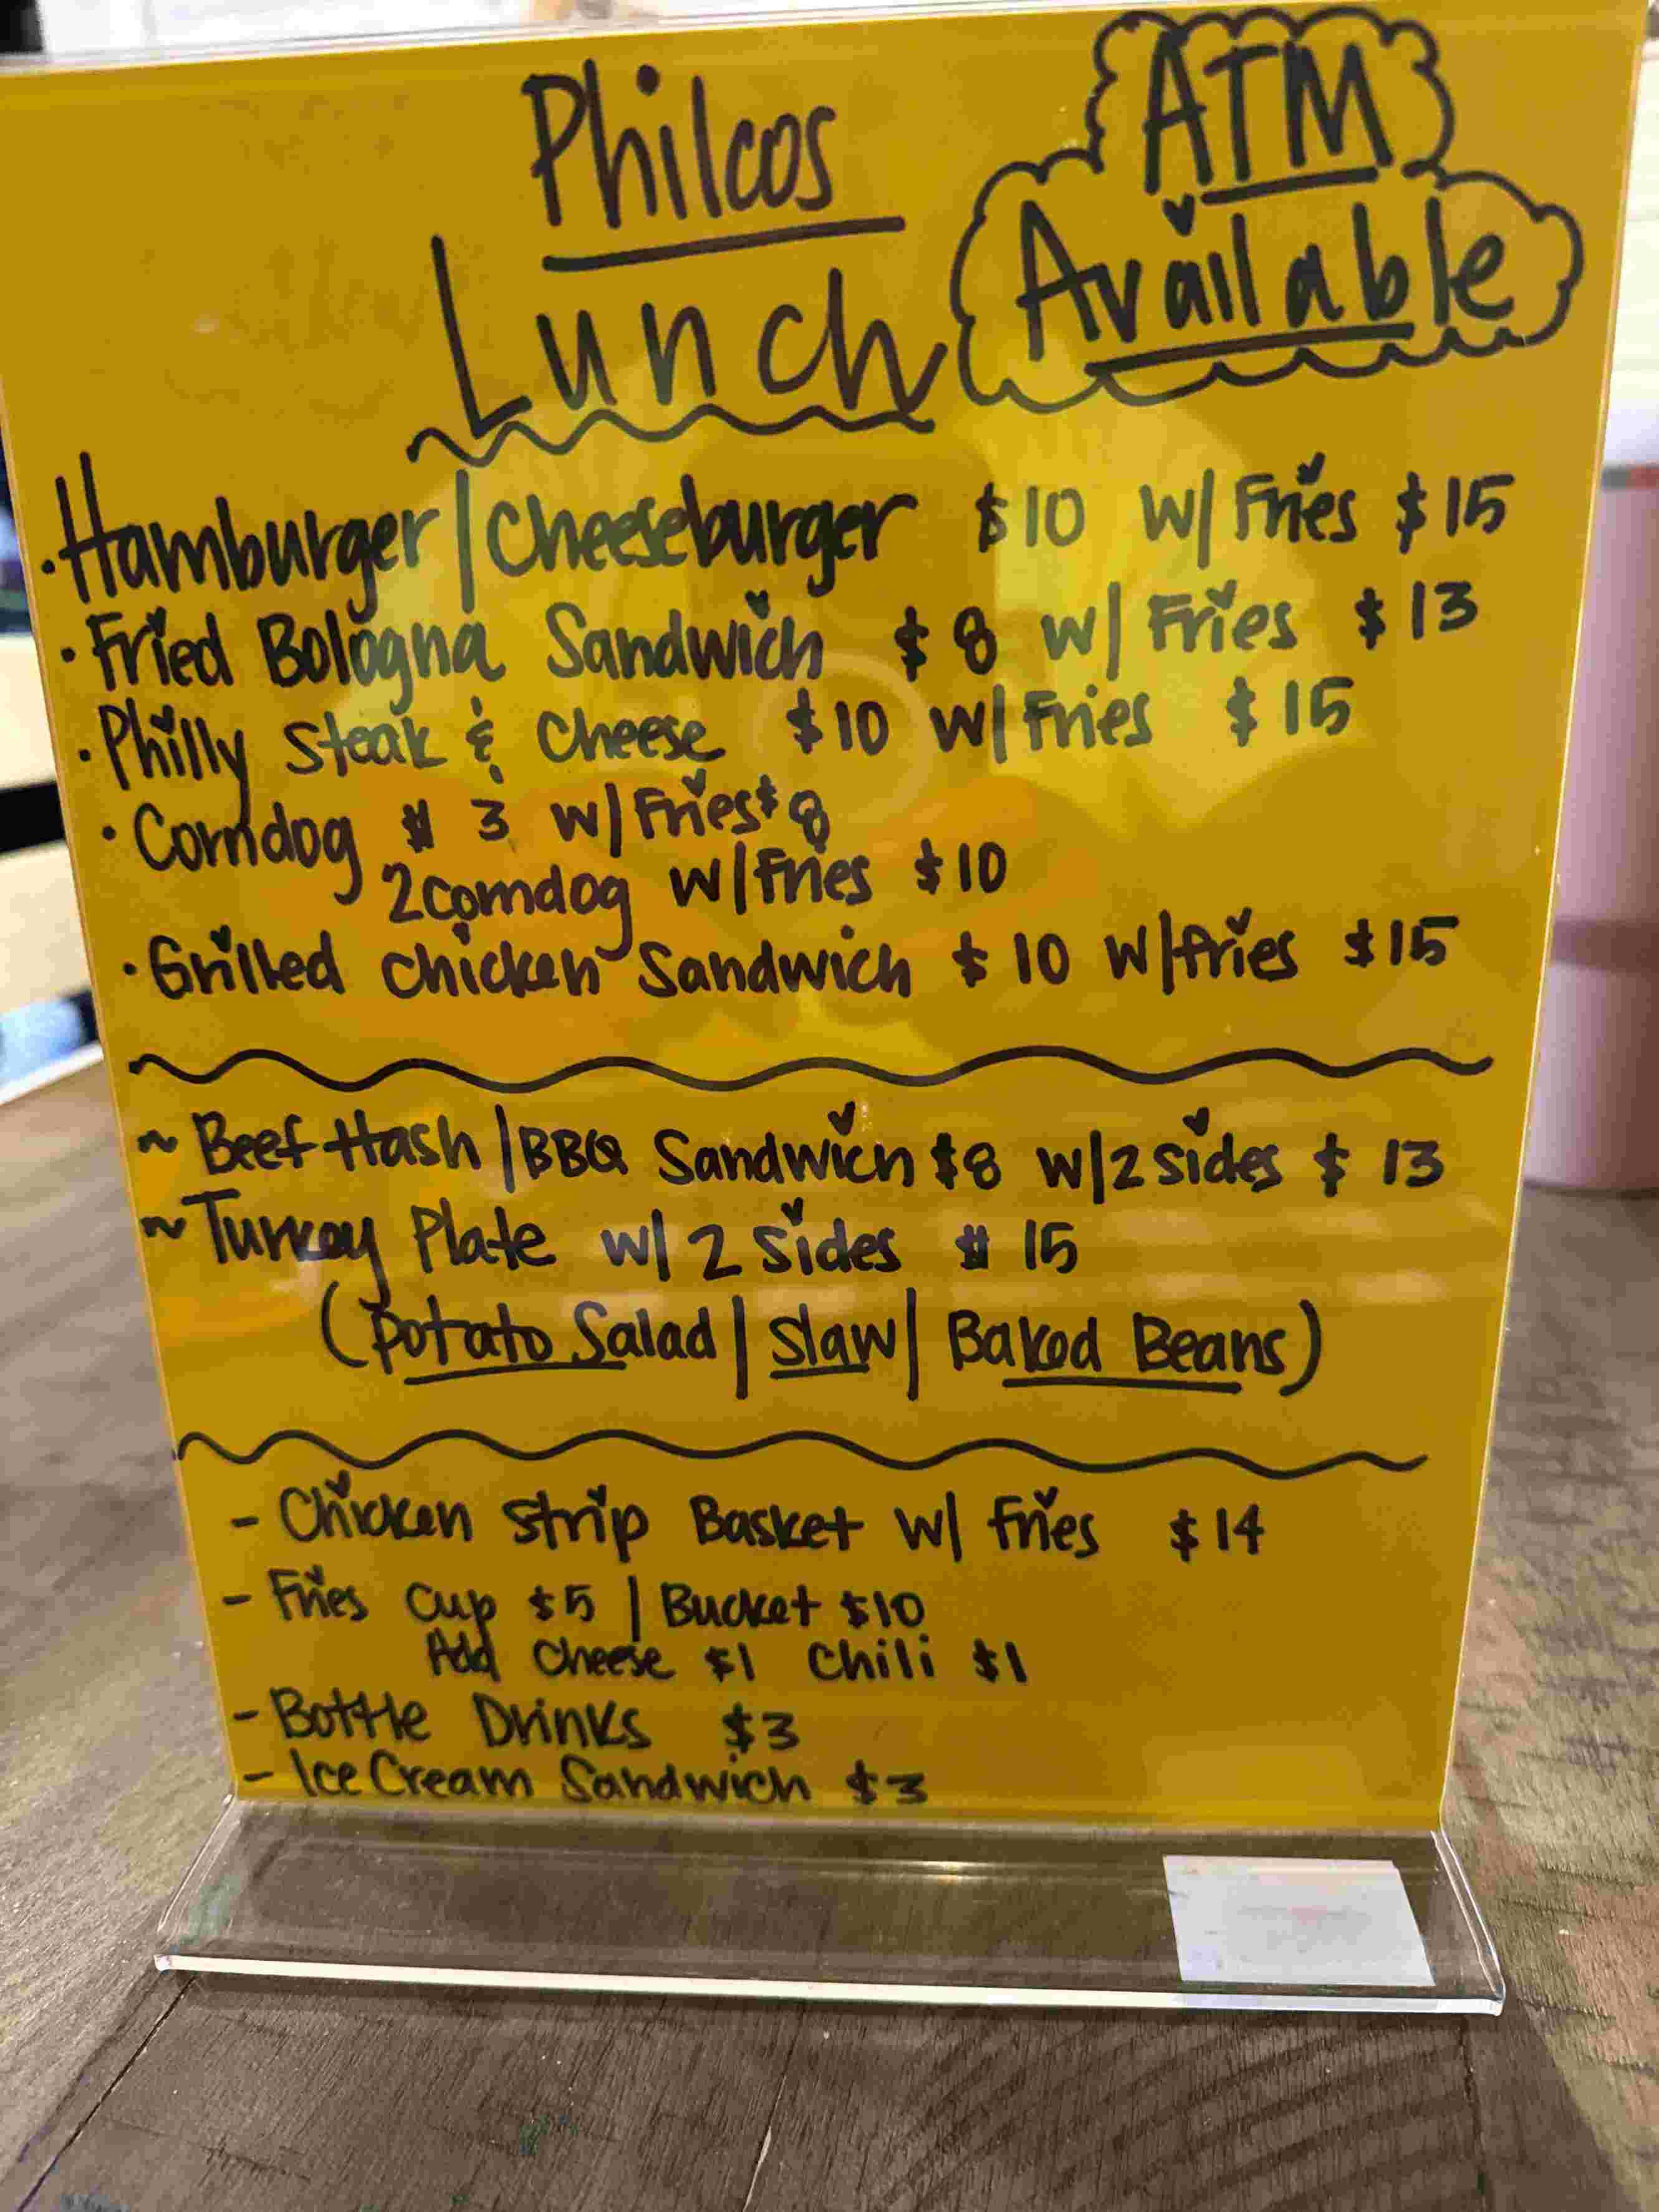 Philcos
ATM
Available
Lunch
· Hamburger/Cheeseburger $10 W/ Fries $15
· Fried Bologna Sandwich $8 w/ Fries $13
· Philly Steak & Cheese $10 w/ Fries $15
· Corndog $3 w/ Fries $8
2 corndog w/ Fries $10
· Grilled Chicken Sandwich $10 w/ fries $15
~ Beef Hash / BBQ Sandwich $8 w/ 2 sides $13
~ Turkey Plate w/ 2 Sides $15
(Potato Salad / Slaw / Baked Beans)
- Chicken Strip Basket w/ fries $14
- Fries Cup $5 | Bucket $10
Add Cheese $1 Chili $1
- Bottle Drinks $3
- Ice Cream Sandwich $3